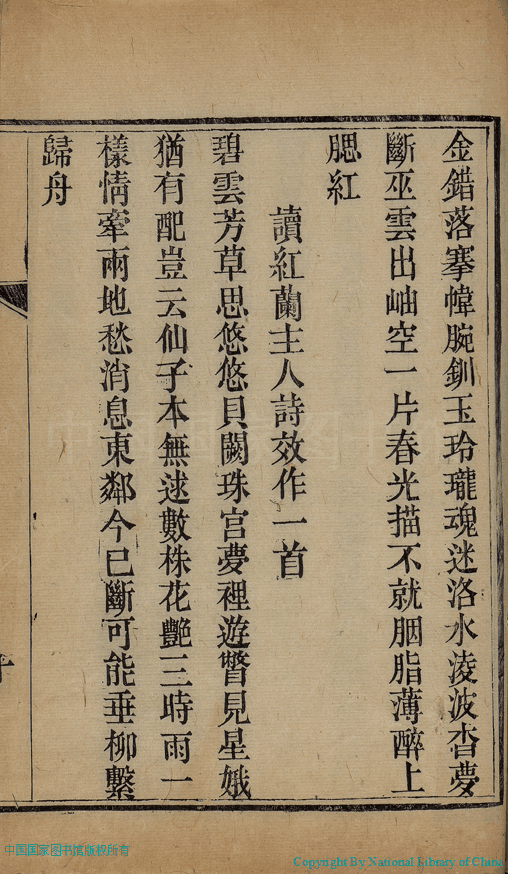 金錯落搴幃腕釧玉玲瓏魂迷洛水淩波杳夢
斷巫雲出岫空一片春光描不就胭脂薄醉上
腮紅
讀紅蘭主人詩效作一首
碧雲芳草思悠悠貝闕珠宮夢裡遊瞥見星娥
猶有配豈云仙子本無逑數株花艷三時雨一
樣情牽兩地愁消息東鄰今已斷可能垂柳繫
歸舟
十
中国国家图书馆版权所有
Copyright By National Library of China